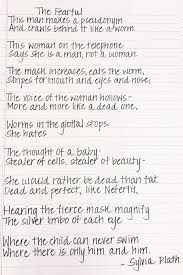 The Fearful
This man makes a pseudonym
And crawls behind it like a worm.
This woman on the telephone
Says she is a man, not a woman.
The mask increases, eats the worm,
Stripes for mouth and eyes and nose,
The voice of the woman hollows-
More and more like a dead one,
Worms in the glottal stops.
She hates
The thought of a baby-
Stealer of cells, stealer of beauty-
She would rather be dead than fat,
Dead and perfect, like Nefertit,
Hearing the fierce mask magnify
The silver limbo of each eye
Where the child can never swim
Where there is only him and him.
- Sylvia Plath